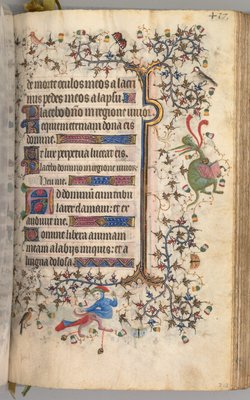 de morte oculos meos a lacri
mis pedes meos a lapsu
Placebo dño in regione uiuor
Requiem eternam dona eis
domine.
Et lux perpetua luceat eis.
Placebo domino in regione uiuor
Ad dominum cum tribu
larer clamaui: et ex
audiuit me.
Domine libera animam
meam a labijs iniquis: et a
lingua dolosa